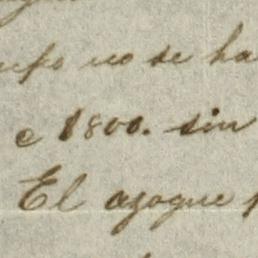 no se ha
e 1800. sin
El azogue